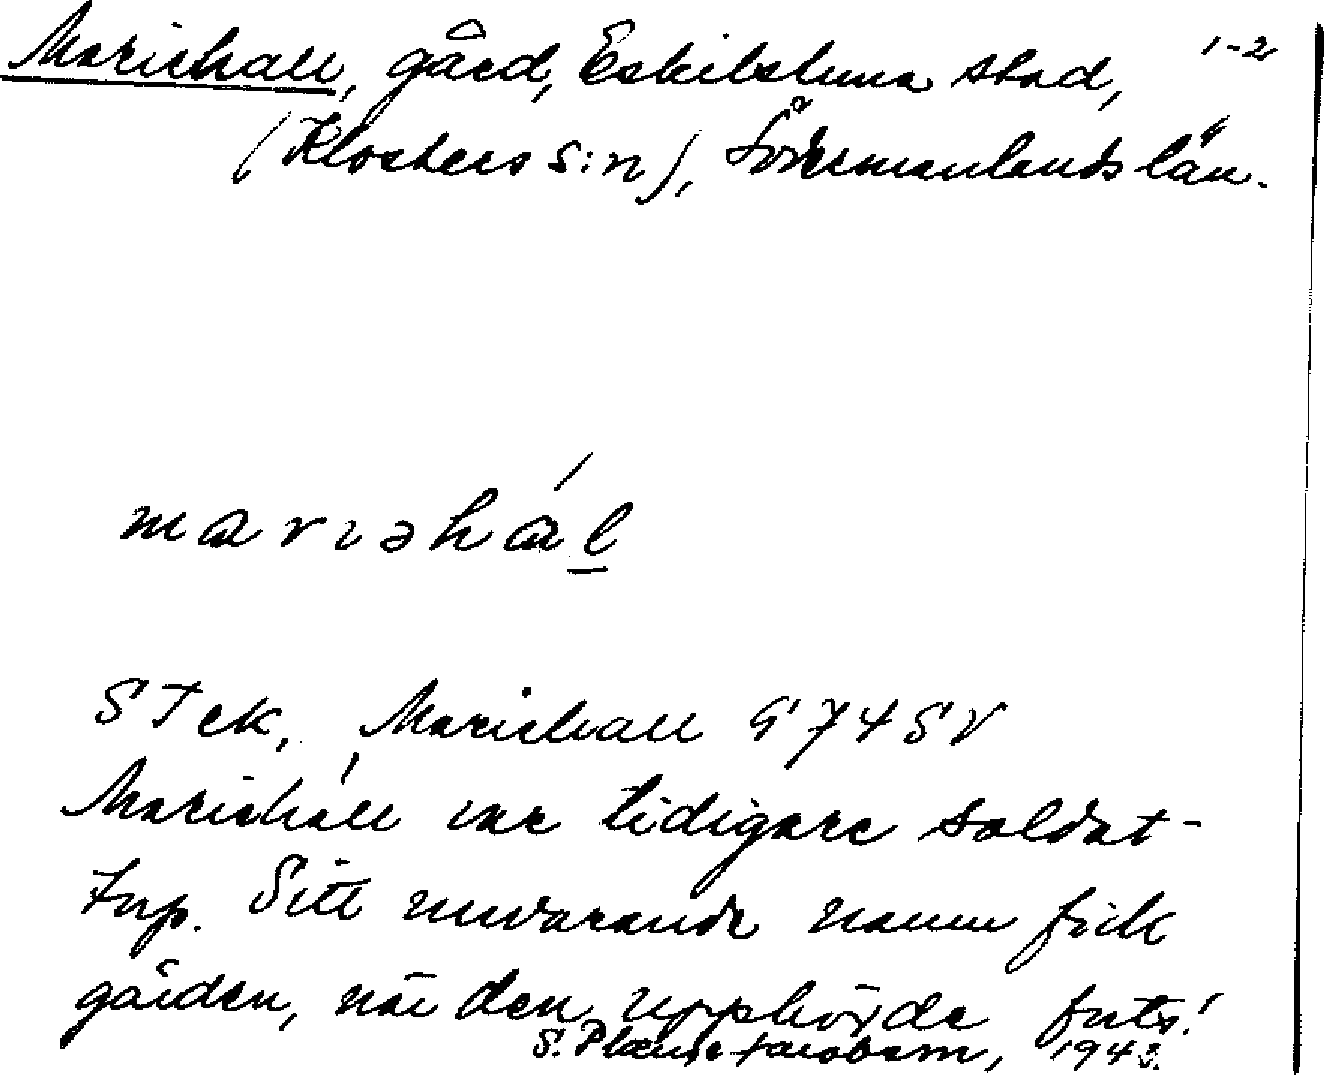 Mariehall, gård, Eskilstuna stad, 1-2
(Klosters S:n), Södermanlands län.
mariəhál
STek, Mariehall G74SV
Mariehall var tidigare soldat-
torp. Sitt nuvarande namn fick
gården, när den upphörde
S. Jacobsson, 1943.